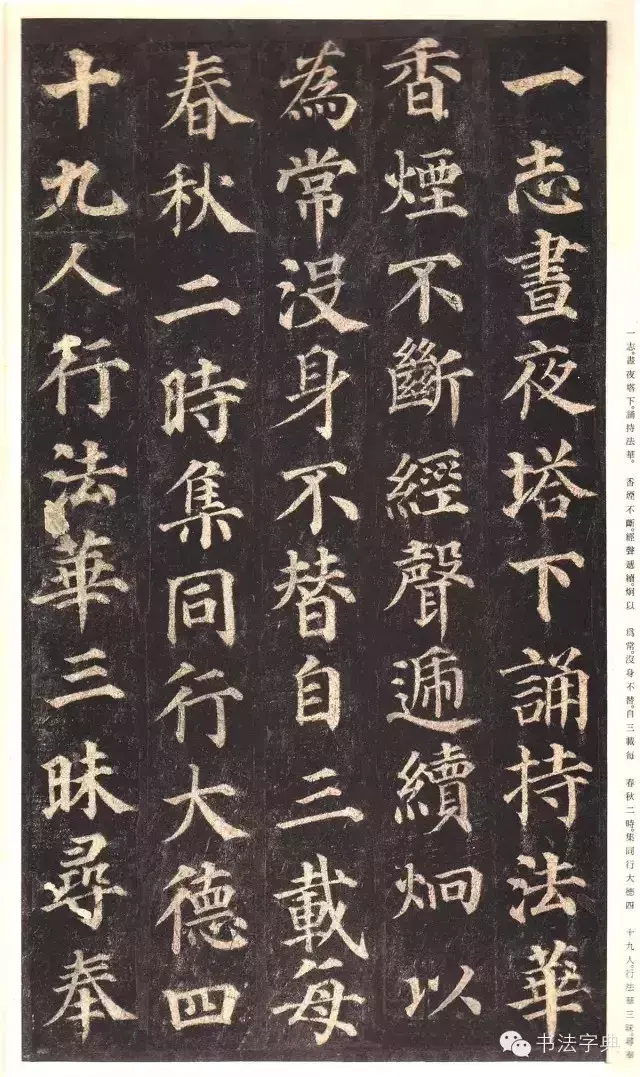 一志晝夜塔下誦持法華
香煙不斷經聲遞續炯以
為常没身不替自三載每
春秋二時集同行大德四
十九人行法華三昧尋奉
一志。晝夜塔下。誦持法華。 香煙不斷。經聲遞續。炯以 爲常。沒身不替。自三載每 春秋二時。集同行大德四 十九人。行法華三昧。尋奉
书法字典